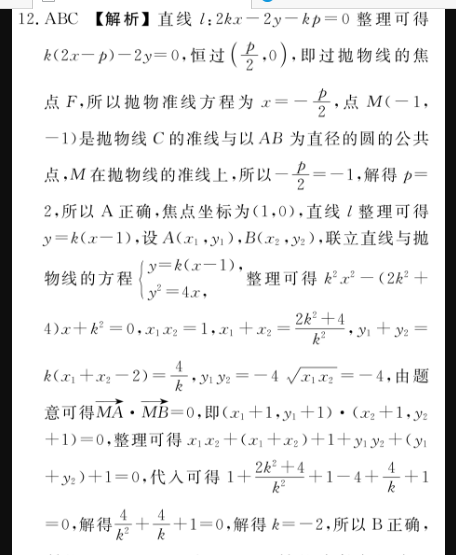 12. ABC 【解析】直线 l:2kx－2y－kp＝0 整理可得
k(2x－p)－2y＝0,恒过(p/2,0),即过抛物线的焦
点 F,所以抛物准线方程为 x＝－p/2,点 M(－1,
－1)是抛物线 C 的准线与以 AB 为直径的圆的公共
点,M 在抛物线的准线上,所以－p/2＝－1,解得 p＝
2,所以 A 正确,焦点坐标为(1,0),直线 l 整理可得
y＝k(x－1),设 A(x₁,y₁),B(x₂,y₂),联立直线与抛
物线的方程{y＝k(x－1), y²＝4x, 整理可得 k²x²－(2k²＋
4)x＋k²＝0,x₁x₂＝1,x₁＋x₂＝(2k²＋4)/k²,y₁＋y₂＝
k(x₁＋x₂－2)＝4/k,y₁y₂＝－4√(x₁x₂)＝－4,由题
意可得→MA·→MB＝0,即(x₁＋1,y₁＋1)·(x₂＋1,y₂
＋1)＝0,整理可得 x₁x₂＋(x₁＋x₂)＋1＋y₁y₂＋(y₁
＋y₂)＋1＝0,代入可得 1＋(2k²＋4)/k²＋1－4＋4/k＋1
＝0,解得4/k²＋4/k＋1＝0,解得 k＝－2,所以 B 正确,